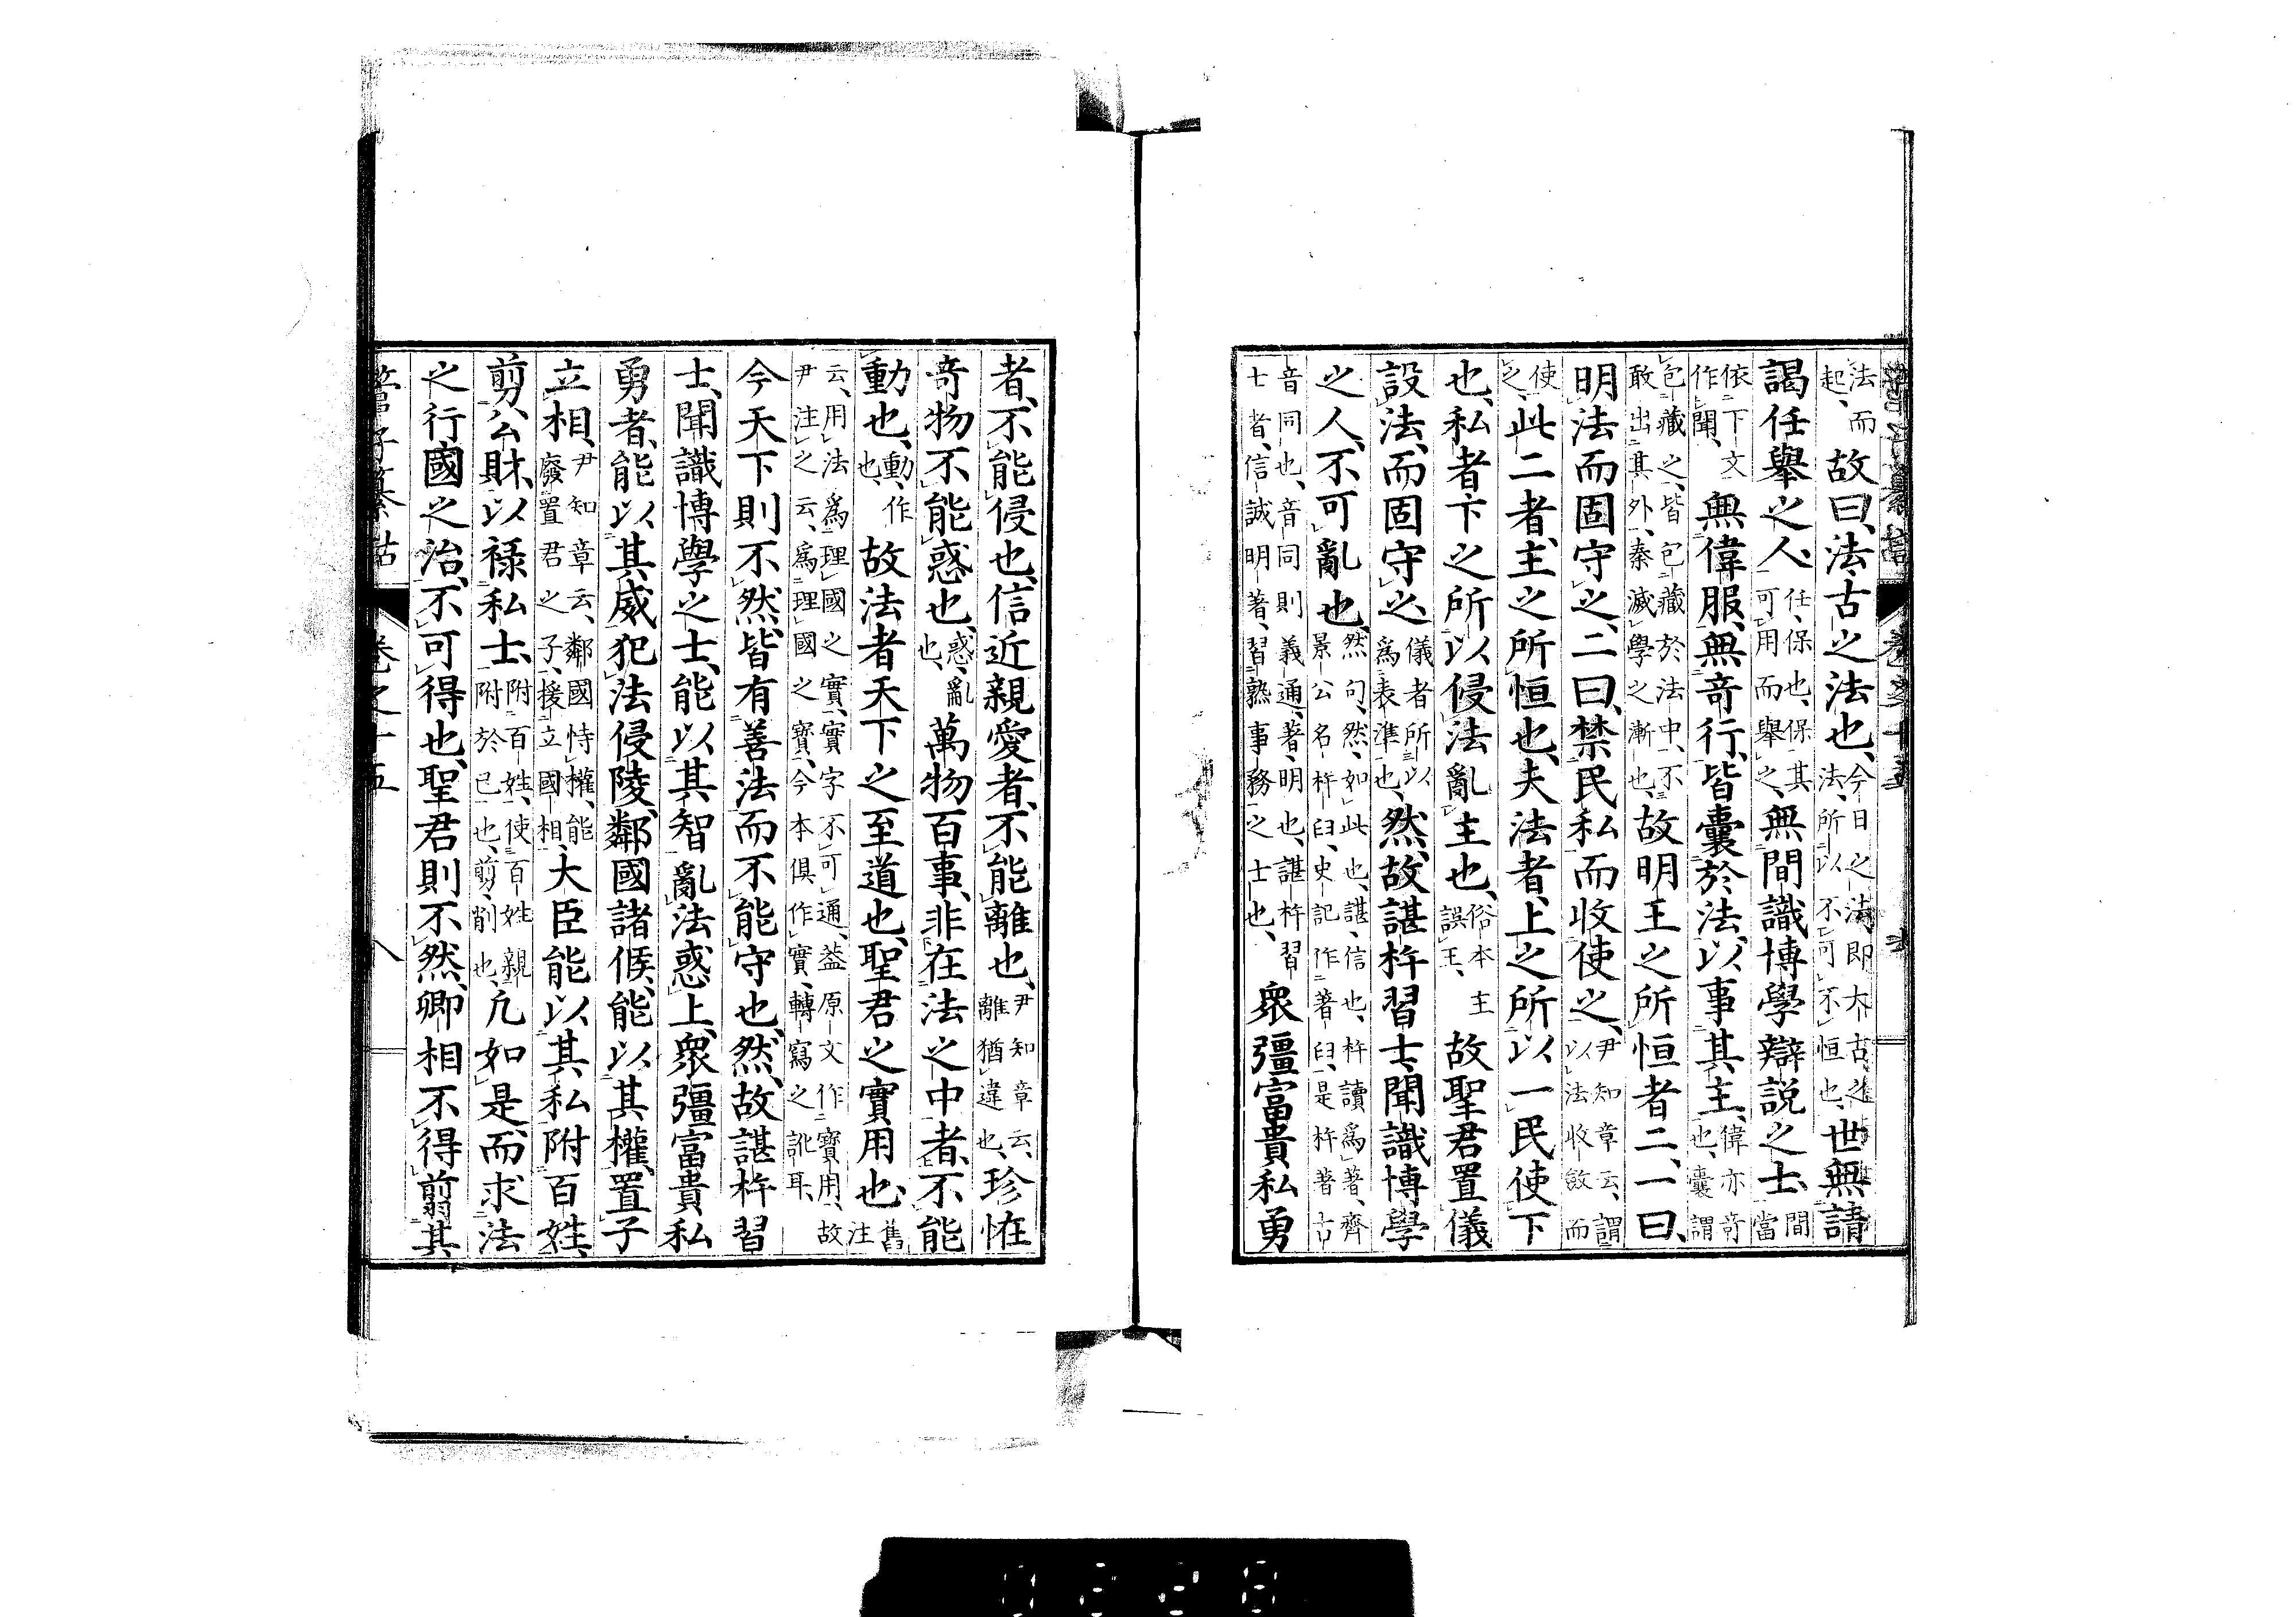 法而起、故曰、法古之法也、今日之法、即大古之法、所以不可不恒也、世無請
謁任舉之人、任、保也、保其可用而舉之、無間識博學辯説之士、間當
依下文作聞、無偉服、無奇行、皆囊於法、以事其主、偉亦奇也、囊謂
包藏之、皆包藏於法中、不敢出其外、秦滅學之漸也、故明王之所恒者二、一曰、
明法而固守之、二曰、禁民私而收使之、尹知章云、謂以法收斂而
使之、此二者、主之所恒也、夫法者、上之所以一民使下
也、私者下之所以侵法亂主也、俗本主誤王、故聖君置儀
設法、而固守之、儀者所以爲表準也、然故諶杵習士、聞識博學
之人、不可亂也、然句、然、如此也、諶、信也、杵讀爲著、齊景公名杵臼、史記作著臼、是杵著古
音同也、音同則義通、著、明也、諶杵習士者、信誠明著、習熟事務之士也、衆彊富貴私勇
者、不能侵也、信近親愛者、不能離也、尹知章云、離猶違也、珍怪
奇物不能惑也、惑、亂也、萬物百事、非在法之中者、不能
動也、動、作也、故法者天下之至道也、聖君之實用也、舊注
云、用法爲理國之實、實字不可通、蓋原文作寶用、故尹注之云、爲理國之寶、今本俱作實、轉寫之訛耳、
今天下則不然、皆有善法而不能守也、然故諶杵習
士、聞識博學之士、能以其智亂法惑上、衆彊富貴私
勇者、能以其威犯法侵陵、鄰國諸侯、能以其權、置子
立相、尹知章云、鄰國恃權、能廢置君之子、援立國相、大臣能以其私附百姓、
剪公財、以祿私士、附百姓、使百姓親附於己也、剪、削也、凡如是、而求法
之行國之治、不可得也、聖君則不然、卿相不得剪其
管子纂詁　卷之十五　八